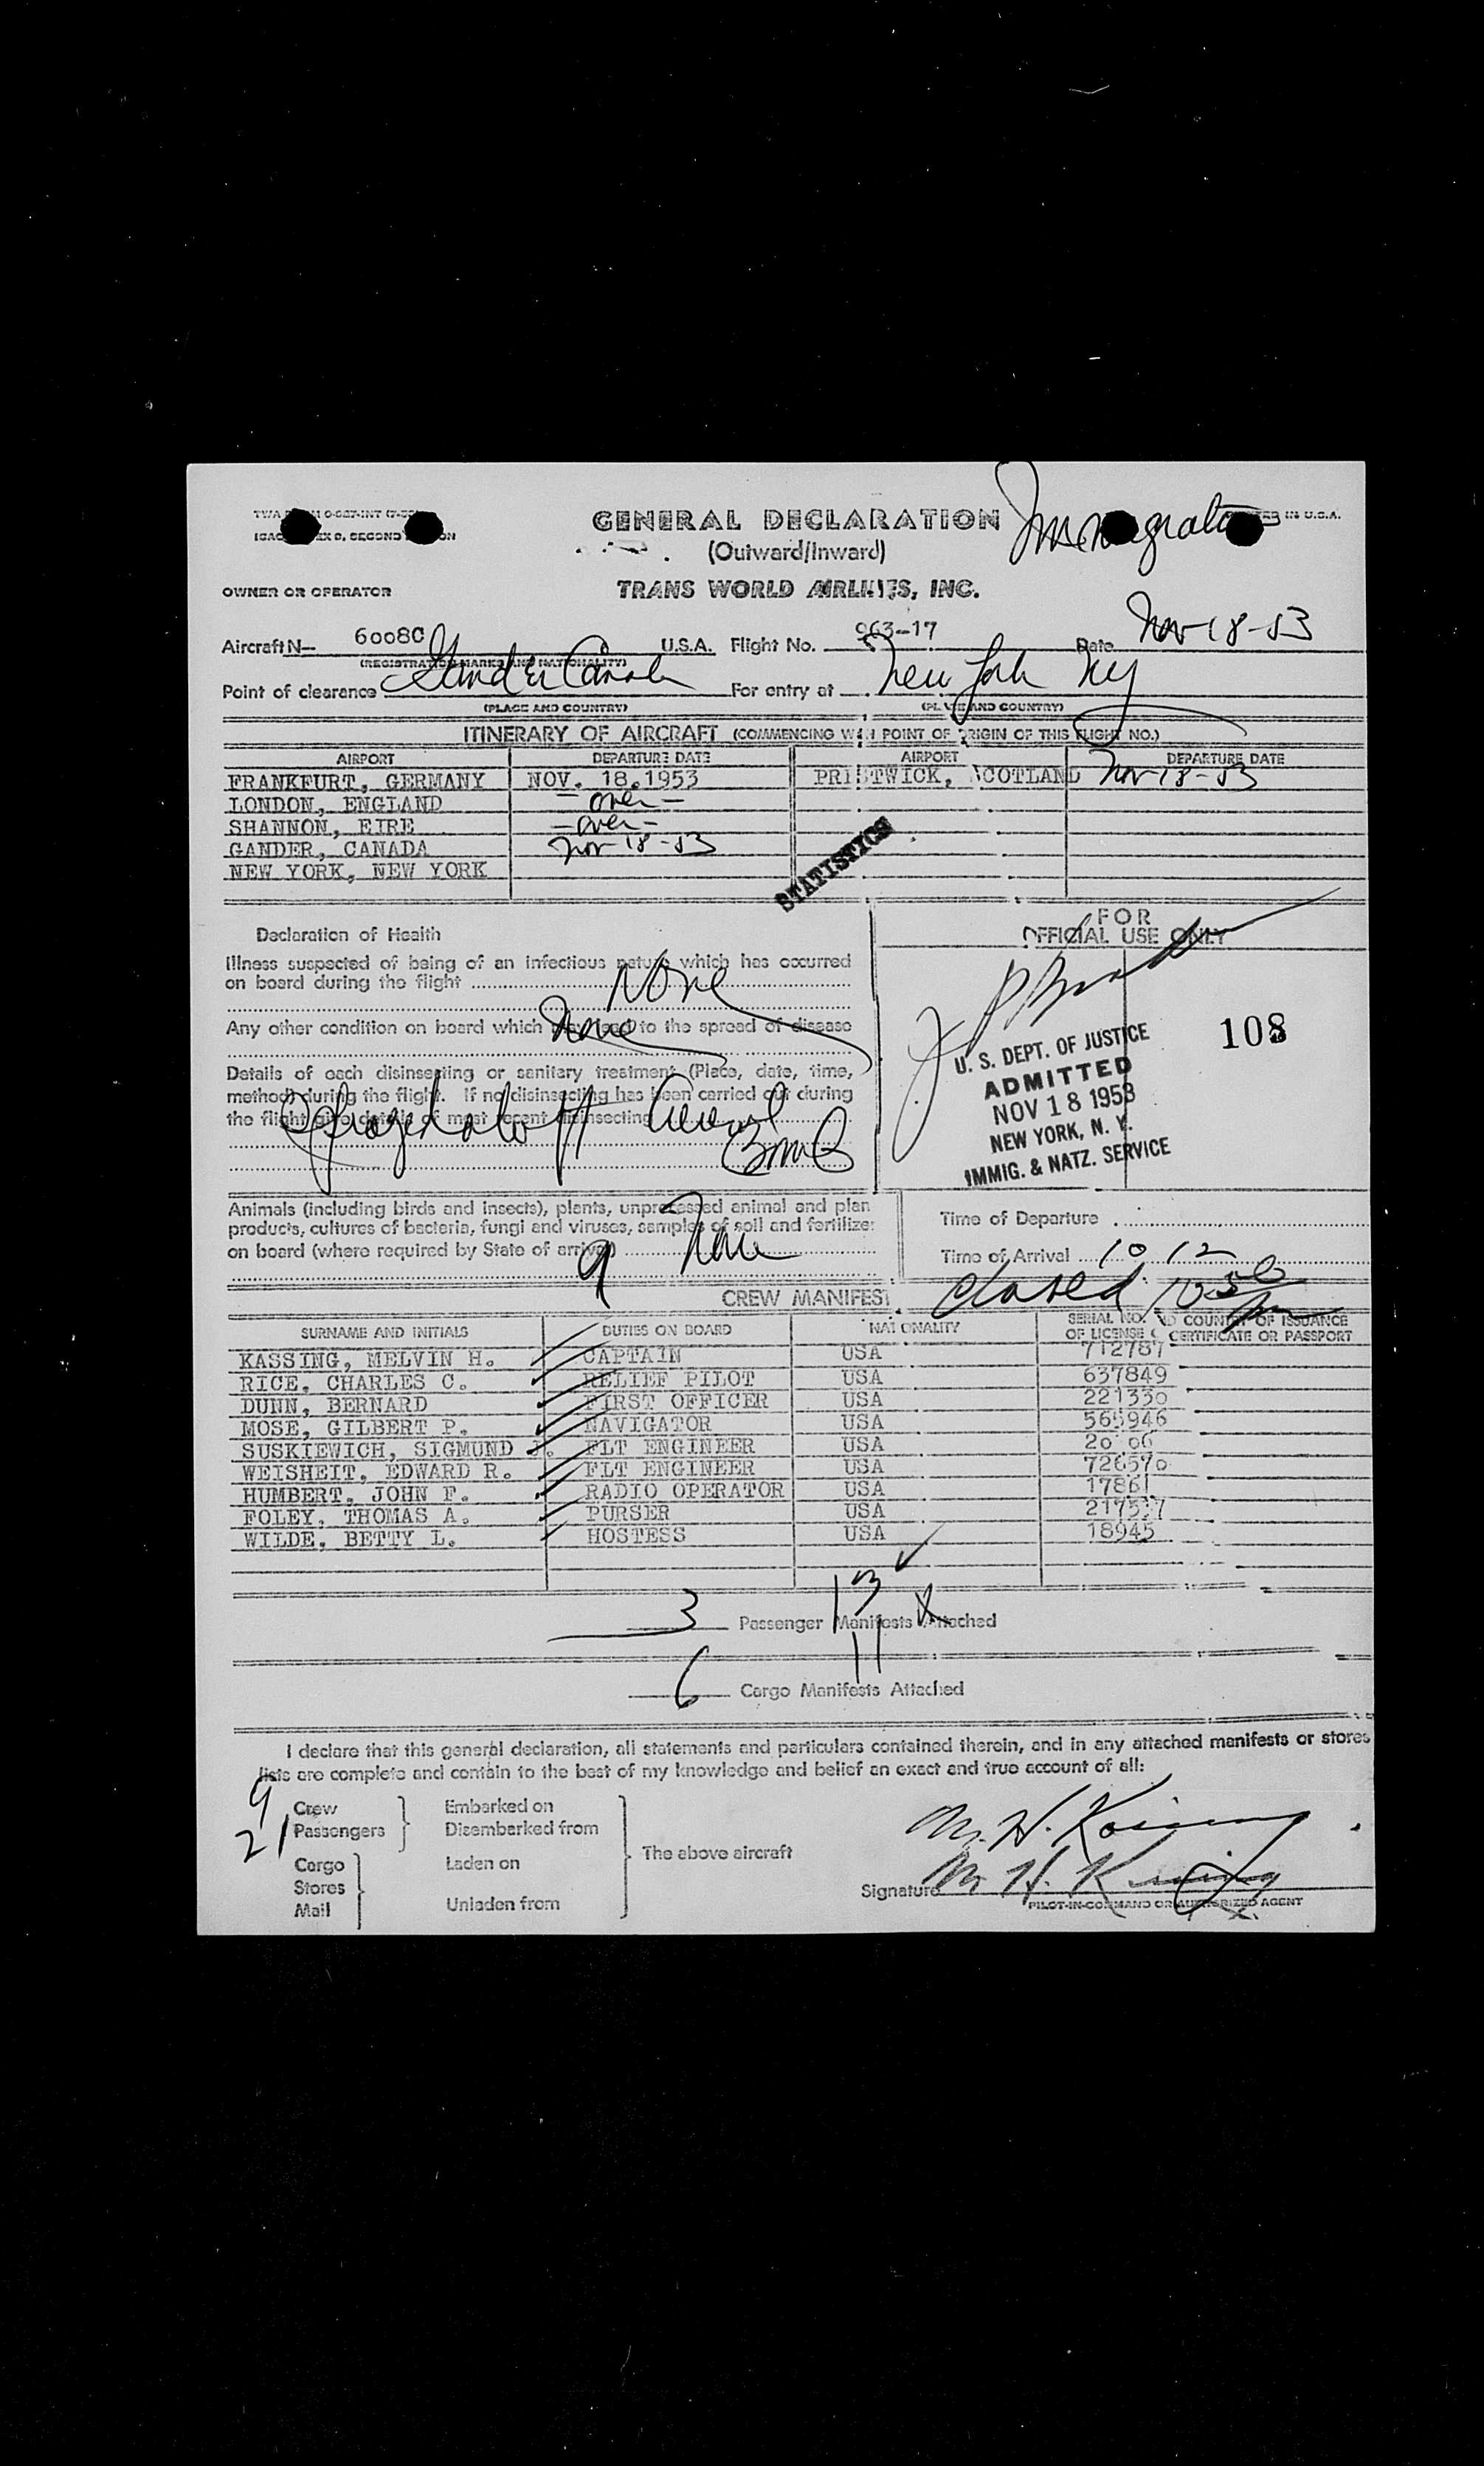 GENERAL DECLARATION
(Outward/Inward)
Immigration
OWNER OR OPERATOR TRANS WORLD AIRLINES, INC.
Aircraft N— 6008C U.S.A. Flight No. 963-17 Date Nov-18-53
(REGISTRATION MARKS AND NATIONALITY)
Point of clearance Gander Canada For entry at New York NY
(PLACE AND COUNTRY) (PLACE AND COUNTRY)
ITINERARY OF AIRCRAFT (COMMENCING WITH POINT OF ORIGIN OF THIS FLIGHT NO.)
AIRPORT DEPARTURE DATE AIRPORT DEPARTURE DATE
FRANKFURT, GERMANY NOV. 18.1953 PRESTWICK, SCOTLAND Nov-18-53
LONDON, ENGLAND — over —
SHANNON, EIRE — over —
GANDER, CANADA Nov-18-53
NEW YORK, NEW YORK
STATISTICS
Declaration of Health
Illness suspected of being of an infectious nature which has occurred
on board during the flight None
Any other condition on board which may lead to the spread of disease
None
Details of each disinsecting or sanitary treatment (Place, date, time,
method) during the flight. If no disinsecting has been carried out during
the flight give details of most recent disinsecting
Bomb
FOR
OFFICIAL USE ONLY
108
U. S. DEPT. OF JUSTICE
ADMITTED
NOV 18 1953
NEW YORK, N. Y.
IMMIG. & NATZ. SERVICE
Animals (including birds and insects), plants, unprocessed animal and plan
products, cultures of bacteria, fungi and viruses, samples of soil and fertilizer
on board (where required by State of arrival) None
9
Time of Departure
Time of Arrival 10 12
closed 10 50
CREW MANIFEST
SURNAME AND INITIALS DUTIES ON BOARD NATIONALITY SERIAL NO. AND COUNTRY OF ISSUANCE
OF LICENSE CERTIFICATE OR PASSPORT
KASSING, MELVIN H. CAPTAIN USA 712787
RICE, CHARLES C. RELIEF PILOT USA 637849
DUNN, BERNARD FIRST OFFICER USA 221330
MOSE, GILBERT P. NAVIGATOR USA 565946
SUSKIEWICH, SIGMUND J. FLT ENGINEER USA
WEISHEIT, EDWARD R. FLT ENGINEER USA 726570
HUMBERT, JOHN F. RADIO OPERATOR USA 17861
FOLEY, THOMAS A. PURSER USA
WILDE, BETTY L. HOSTESS USA 18945
13
3 Passenger Manifests Attached
11
6 Cargo Manifests Attached
I declare that this general declaration, all statements and particulars contained therein, and in any attached manifests or stores
lists are complete and contain to the best of my knowledge and belief an exact and true account of all:
9 Crew Embarked on
21 Passengers Disembarked from
Cargo Laden on The above aircraft
Stores
Mail Unladen from
M. H. Kassing
Signature M. H. Kassing
PILOT-IN-COMMAND OR AUTHORIZED AGENT